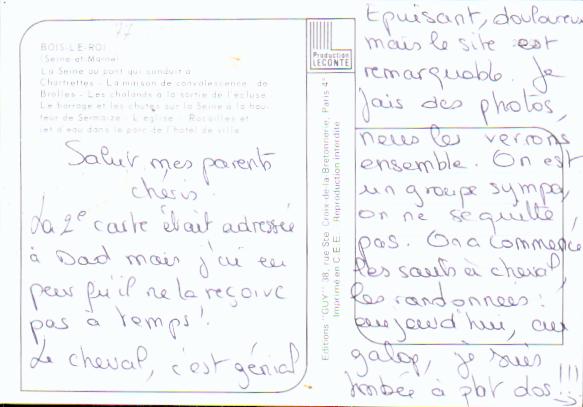 77
BOIS-LE-ROI
(Seine et Marne)
La Seine au pont qui conduit à
Chartrettes - La maison de convalescence de
Brolles - Les chalands à la sortie de l'écluse
Le barrage et les chutes sur la Seine à la hau-
teur de Sermaize - L'église - Rocailles et
jet d'eau dans le parc de l'hôtel de ville
Production
LECONTE
Editions "GUY" 38, rue Ste Croix-de-la-Bretonnerie, Paris 4°
Imprimé en C.E.E. Reproduction interdite
Salut mes parents
chéris.
La 2e carte était adressée
à Dad mais j'ai eu
peur qu'il ne la reçoive
pas à temps!
Le cheval, c'est génial
Epuisant, douloureux
mais le site est
remarquable. Je
fais des photos,
nous les verrons
ensemble. On est
un groupe sympa,
on ne se quitte
pas. On a commencé
les sauts à cheval
les randonnées!
aujourd'hui, au
galop, je suis
tombée à plat dos!!!